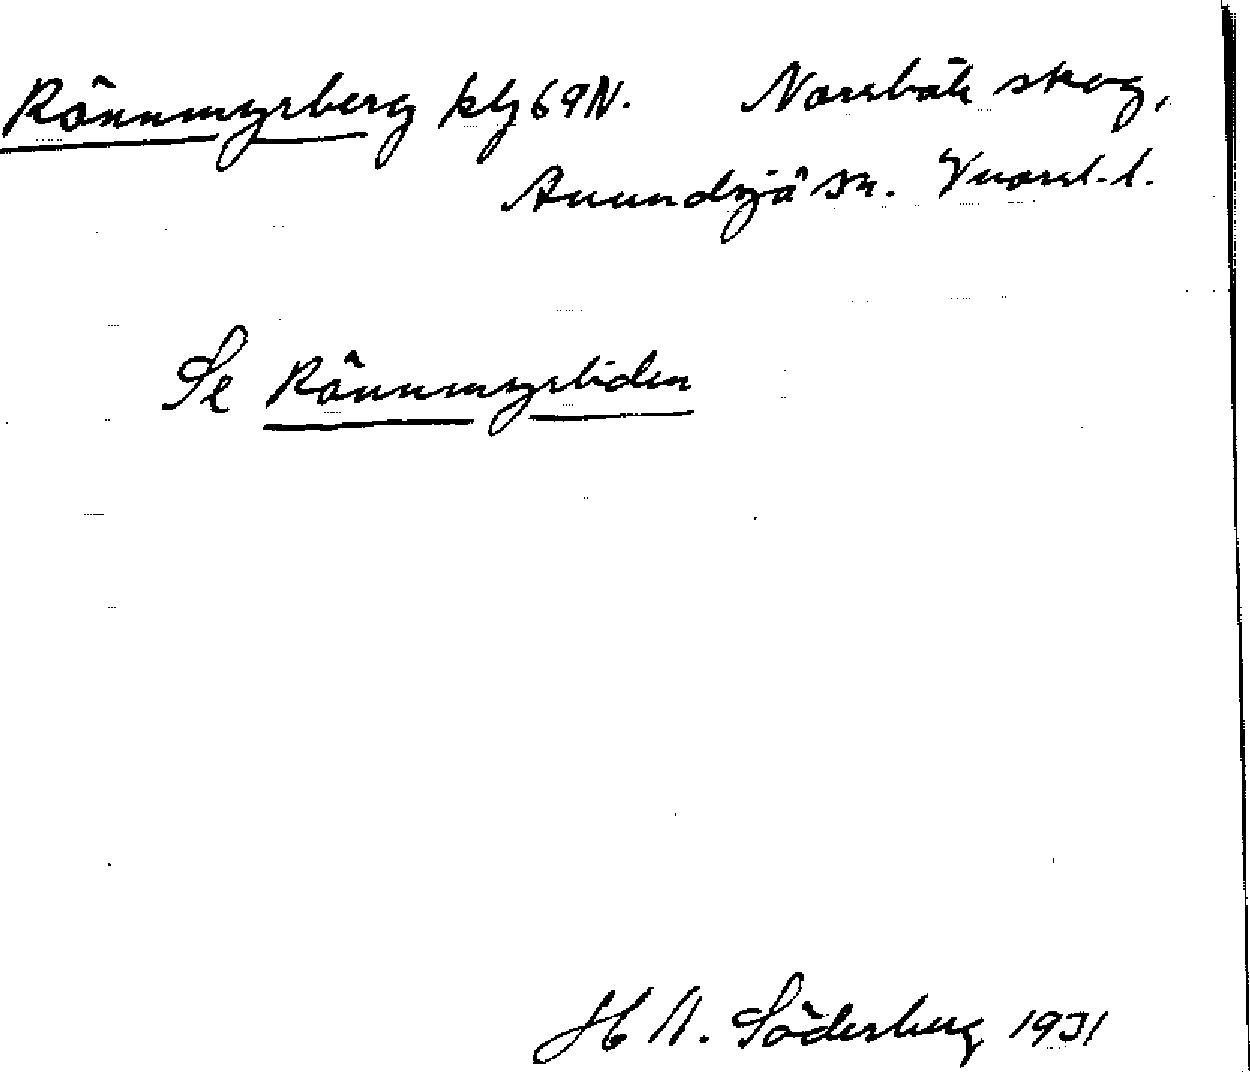 Rönnmyrberg klj 69 N. Norrbäck skog,
Anundsjö sn. Västerl. l.
Se Rönnmyrliden
H N. Söderberg 1931